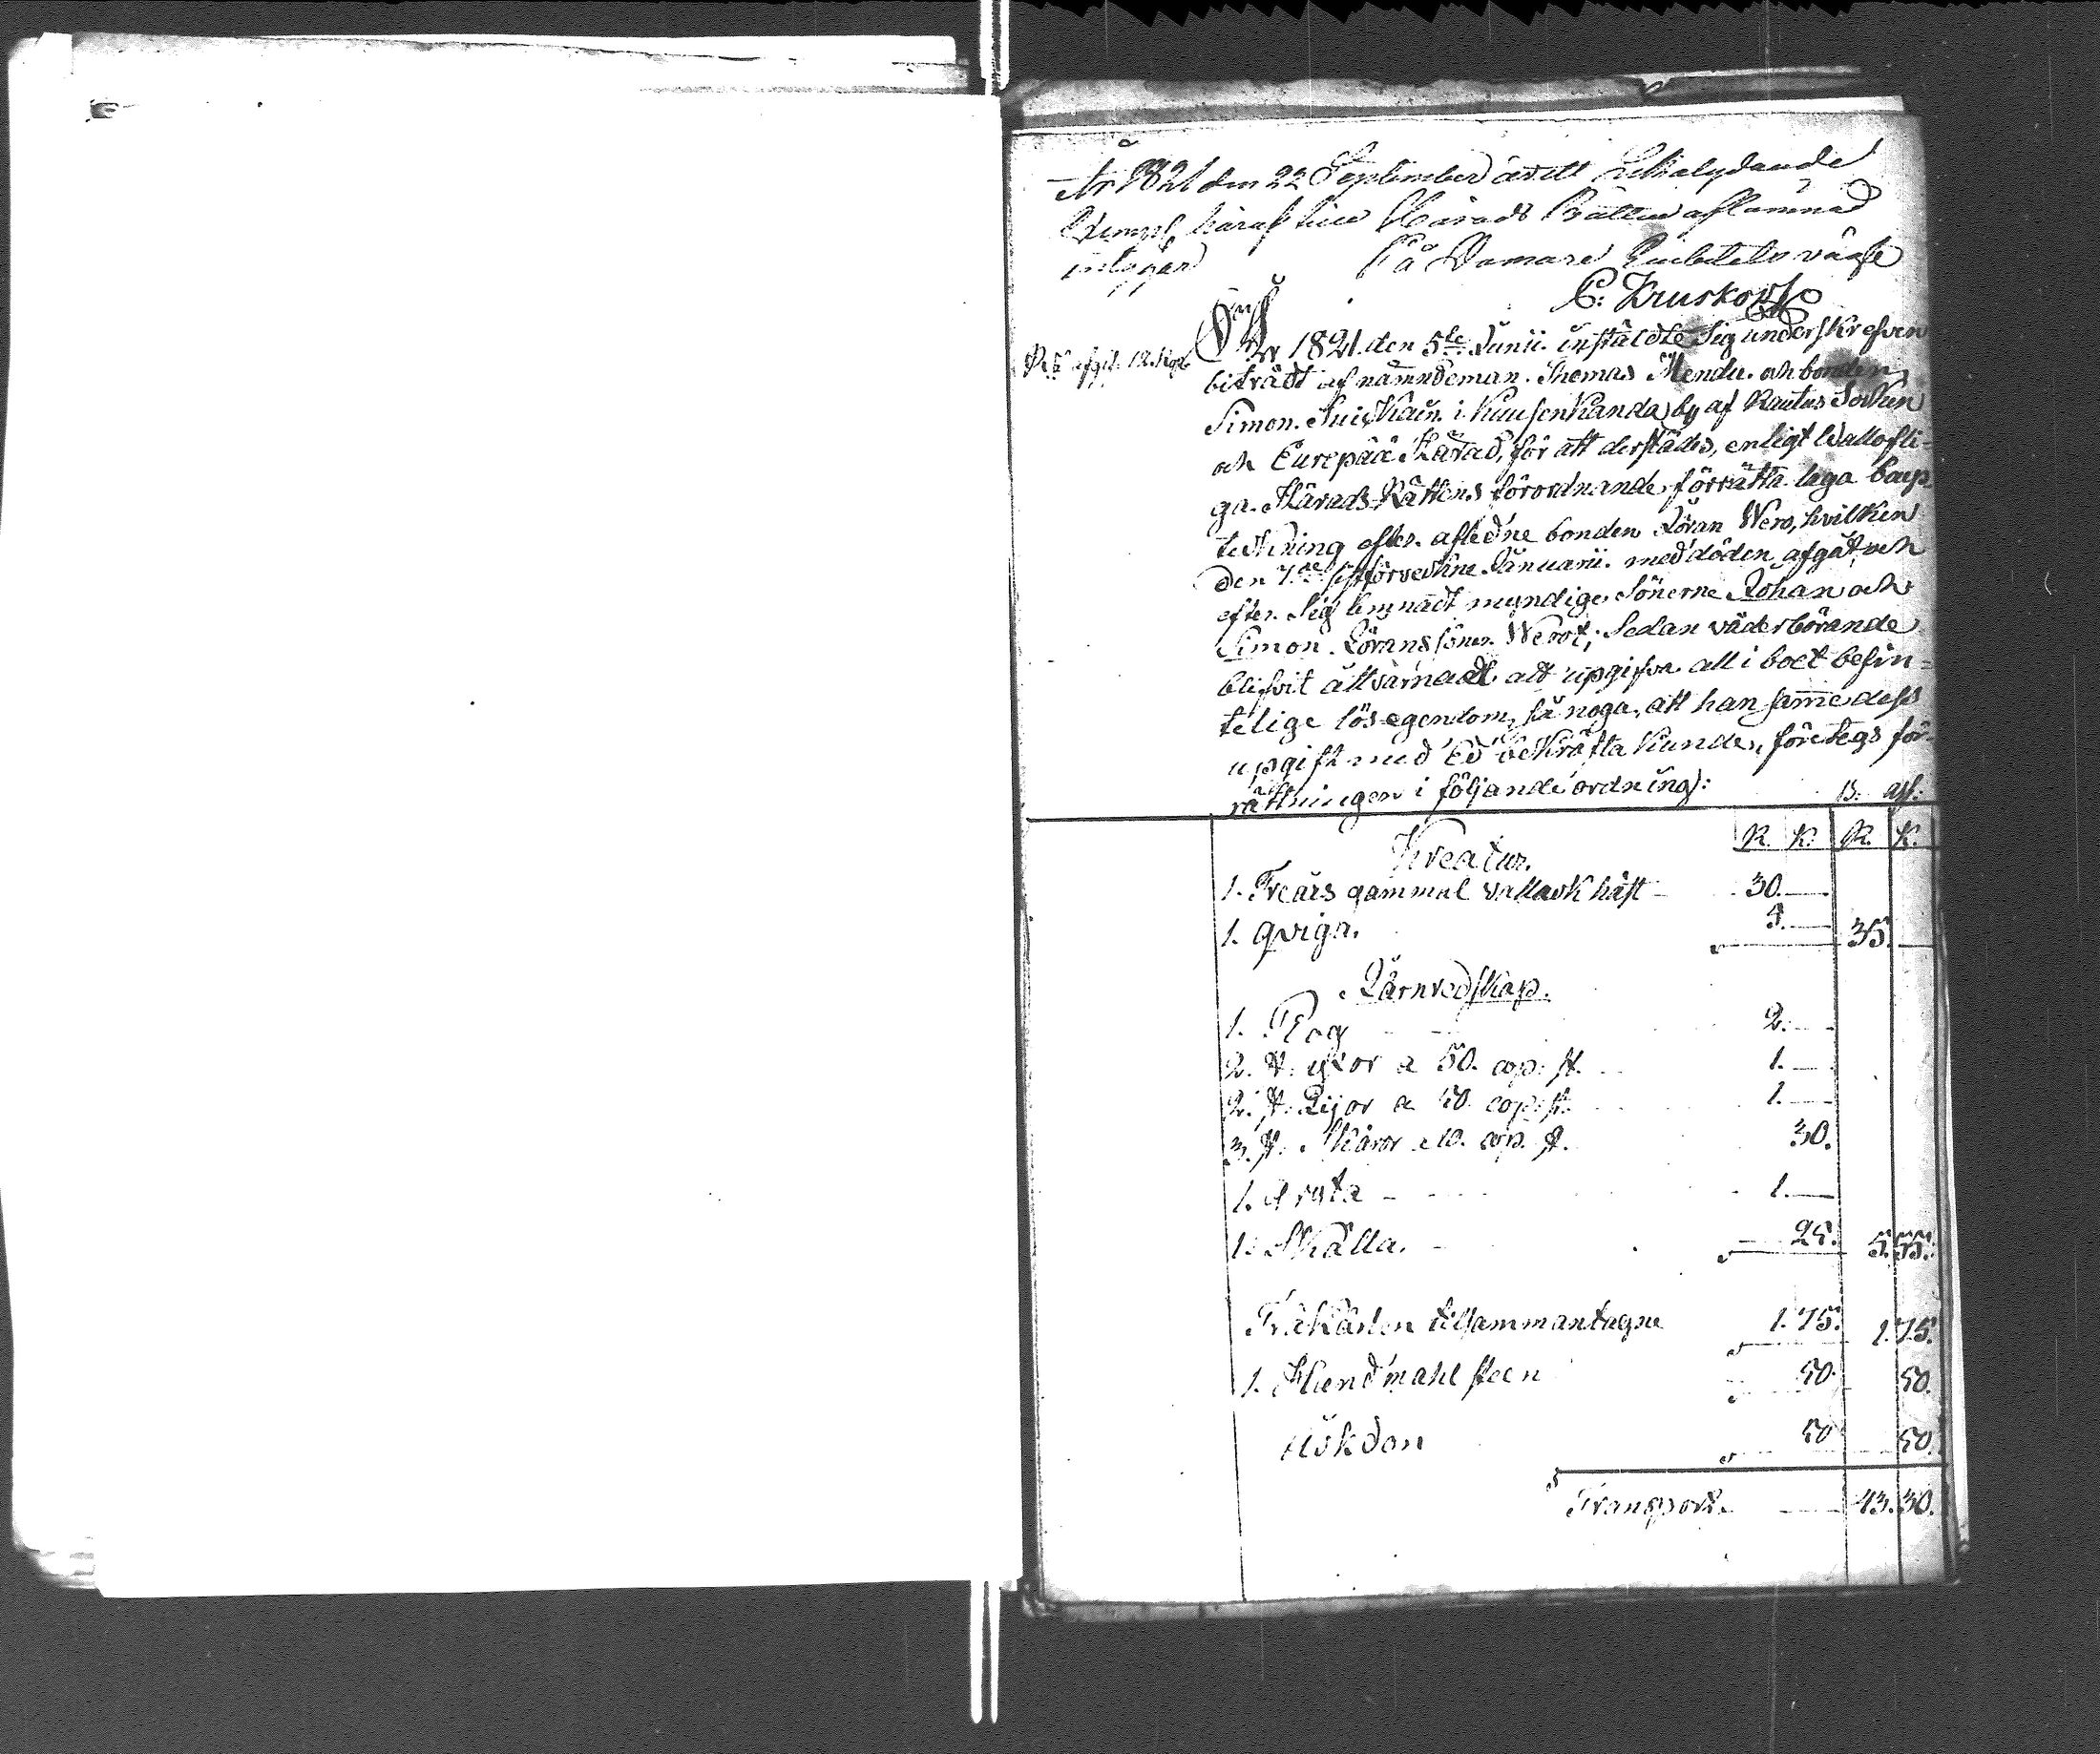 År 1821 den 22 September är ett Likalydande
Exempl. häraf till Härads Rätten aflämnad
intygar På Domare Embetets vägnar
C: Kruskopf
År 1821. den 5te Junii. instäldte Sig underskrefven
biträdt af nämndeman. Thomas Mendu. och bonden
Simon. i Kuusenkanda by af Rautus Sokn
och Eurepää Härad, för att derstädes, enligt Wällofli-
ga. Härads Rättens förordnande, förrätta laga boup-
tekning efter. afledne bonden Jöran Wero, hvilken
den 7de sistförvekne Januarii. med döden afgåt, och
efter. Sig lemnadt myndige Sönerne Johan och
Simon. Jöranssöner. Werot; Sedan väderbörande
blifvit åttvarnadt att upgifva all i boet befin-
telige lös egendom, så noga, att han samme dess
upgift med Ed bekräfta kunde, företogs för-
rättningen i följande ordning: B: ass:
R. K. R. K.
Kreatur.
1. Treårs gammal vallack häst - 30.—
1. qviga. 5.— 35.—
Järnredskap.
1. Plog 2.—
2. st. yxor a 50. cop: st. 1.—
2. st. Lijor a 50. cop: st. 1.—
3. st. Skäror a 10. cop. st. 30.
1. Gryta - 1.—
1. Skälla. - 25. 5.55.
Träkärlen tilsammantagne 1.75. 1.75.
1. Handmahl steen 50. 50.
Åökdon 50 50.
Transport. 43.30.